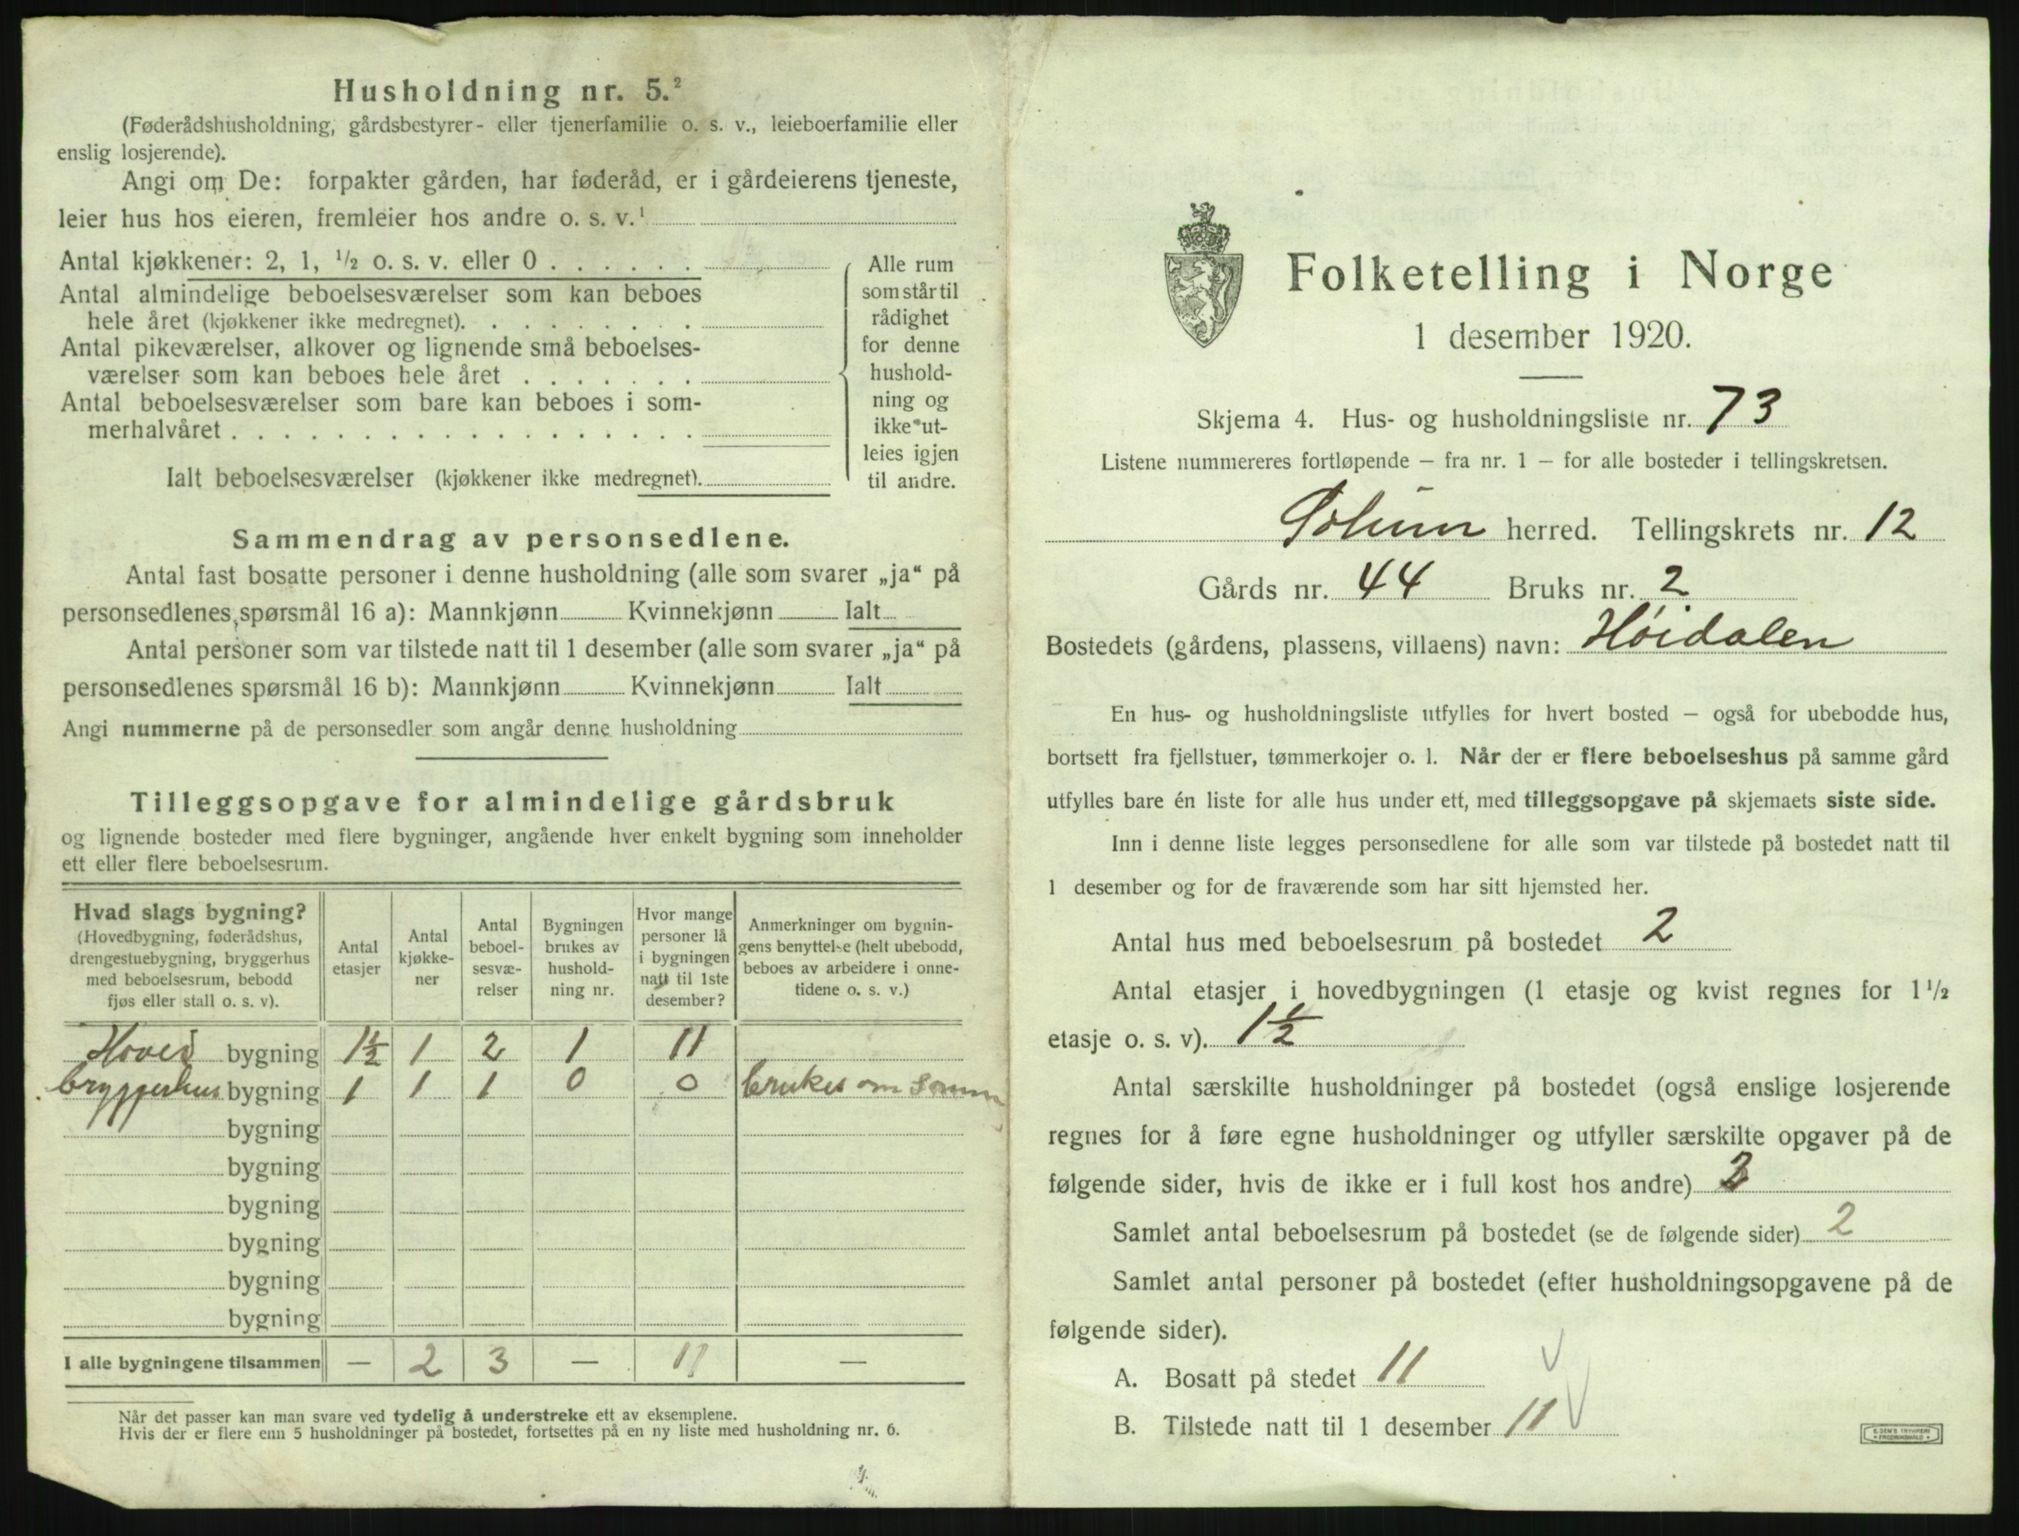 Husholdning nr. 5.²
(Føderådshusholdning, gårdsbestyrer- eller tjenerfamilie o. s. v., leieboerfamilie eller
enslig losjerende).
Angi om De: forpakter gården, har føderåd, er i gårdeierens tjeneste,
leier hus hos eieren, fremleier hos andre o. s. v.¹
Antal kjøkkener: 2, 1, ¹/₂ o. s. v. eller 0 . . . . . .
Antal almindelige beboelsesværelser som kan beboes
hele året (kjøkkener ikke medregnet). . . . . . . . .
Antal pikeværelser, alkover og lignende små beboelses-
værelser som kan beboes hele året . . . . . . .
Antal beboelsesværelser som bare kan beboes i som-
merhalvåret . . . . . . . . . . . . . . . . . .
Ialt beboelsesværelser (kjøkkener ikke medregnet).
Alle rum
som står til
rådighet
for denne
hushold-
ning og
ikke ut-
leies igjen
til andre.
Sammendrag av personsedlene.
Antal fast bosatte personer i denne husholdning (alle som svarer „ja“ på
personsedlenes spørsmål 16 a): Mannkjønn Kvinnekjønn Ialt
Antal personer som var tilstede natt til 1 desember (alle som svarer „ja“ på
personsedlenes spørsmål 16 b): Mannkjønn Kvinnekjønn Ialt
Angi nummerne på de personsedler som angår denne husholdning
Tilleggsopgave for almindelige gårdsbruk
og lignende bosteder med flere bygninger, angående hver enkelt bygning som inneholder
ett eller flere beboelsesrum.
Hvad slags bygning?
(Hovedbygning, føderådshus,
drengestuebygning, bryggerhus
med beboelsesrum, bebodd
fjøs eller stall o. s. v).
Antal
etasjer
Antal
kjøkke-
ner
Antal
beboel-
sesvæ-
relser
Bygningen
brukes av
hushold-
ning nr.
Hvor mange
personer lå
i bygningen
natt til 1ste
desember?
Anmerkninger om bygnin-
gens benyttelse (helt ubebodd,
beboes av arbeidere i onne-
tidene o. s. v.)
Hoved bygning 1½ 1 2 1 11
bryggerhus bygning 1 1 1 0 0 brukes om Somm
bygning
bygning
bygning
bygning
bygning
bygning
I alle bygningene tilsammen — 2 3 — 11 —
Når det passer kan man svare ved tydelig å understreke ett av eksemplene.
Hvis der er flere enn 5 husholdninger på bostedet, fortsettes på en ny liste med husholdning nr. 6.
Folketelling i Norge
1 desember 1920.
Skjema 4. Hus- og husholdningsliste nr. 73
Listene nummereres fortløpende — fra nr. 1 — for alle bosteder i tellingskretsen.
Solum herred. Tellingskrets nr. 12
Gårds nr. 44 Bruks nr. 2
Bostedets (gårdens, plassens, villaens) navn: Høidalen
En hus- og husholdningsliste utfylles for hvert bosted — også for ubebodde hus,
bortsett fra fjellstuer, tømmerkojer o. l. Når der er flere beboelseshus på samme gård
utfylles bare én liste for alle hus under ett, med tilleggsopgave på skjemaets siste side.
Inn i denne liste legges personsedlene for alle som var tilstede på bostedet natt til
1 desember og for de fraværende som har sitt hjemsted her.
Antal hus med beboelsesrum på bostedet 2
Antal etasjer i hovedbygningen (1 etasje og kvist regnes for 1 ¹/₂
etasje o. s. v). 1½
Antal særskilte husholdninger på bostedet (også enslige losjerende
regnes for å føre egne husholdninger og utfyller særskilte opgaver på de
følgende sider, hvis de ikke er i full kost hos andre)
Samlet antal beboelsesrum på bostedet (se de følgende sider) 2
Samlet antal personer på bostedet (efter husholdningsopgavene på de
følgende sider).
A. Bosatt på stedet 11
B. Tilstede natt til 1 desember 11